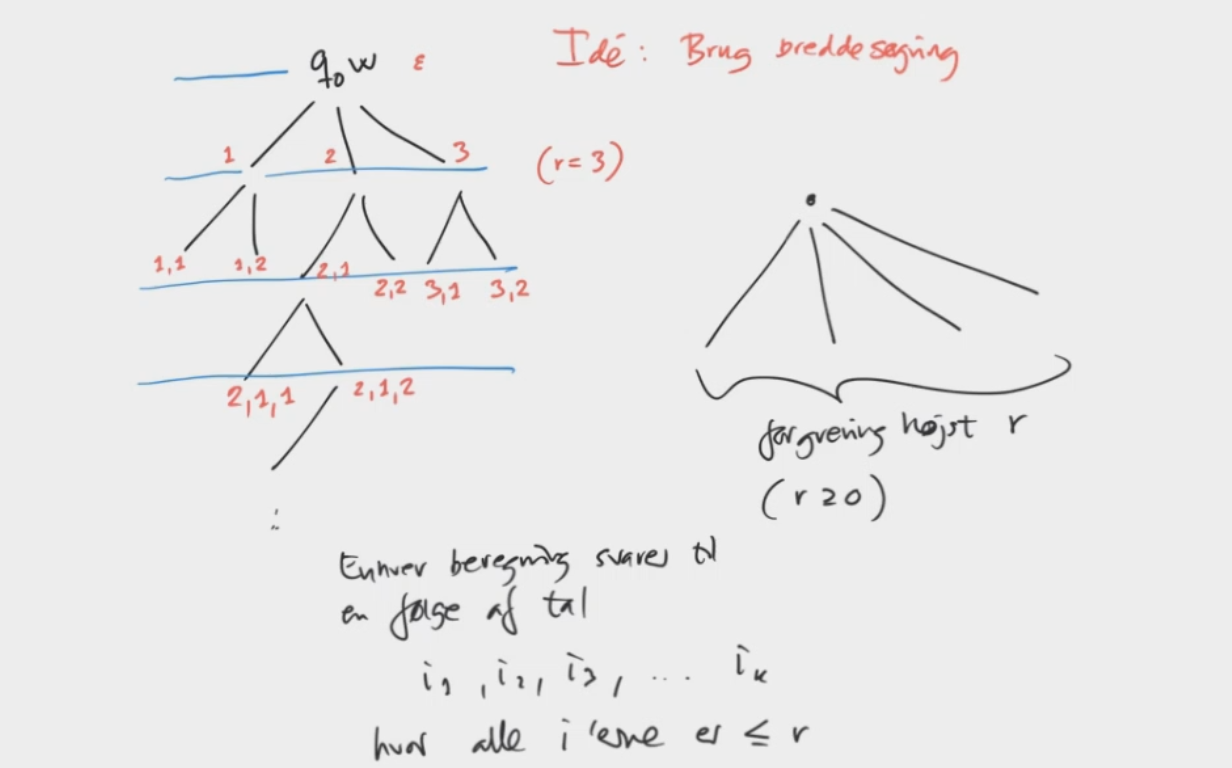 Idé: Brug breddesøgning
q₀w ε
1 2 3 (r=3)
1,1 1,2 2,1
2,2 3,1 3,2
2,1,1 2,1,2
forgrening højst r
(r ≥ 0)
Enhver beregning svarer til
en følge af tal
i₁, i₂, i₃, ... iₖ
hvor alle i'erne er ≤ r